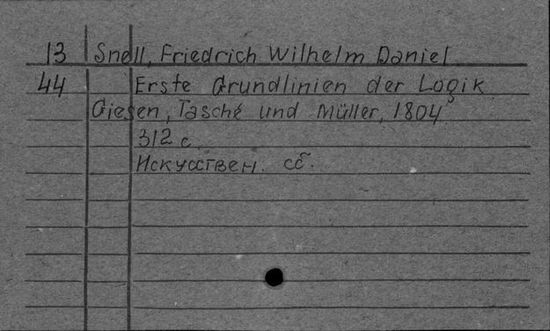 13 Snell, Friedrich Wilhelm Daniel
44 Erste Grundlinien der Logik
Giesen, Tasché und Müller, 1804
312 с.
Искусствен. сб.